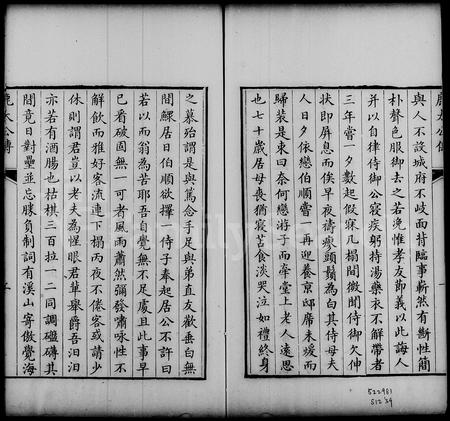 鹿太公傳
與人不設城府不岐面持臨事嶄然有斷性簡
朴聲色服御去之若浼惟孝友節義以此誨人
并以自律侍御公寢疾躬持湯藥衣不解帶者
三年嘗一夕數起假寐几榻間微聞侍御欠伸
狀即屏息而俟早夜禱籲頭鬚為白其侍母夫
人日夕依戀伯順嘗一再迎養京邸席未煖而
歸裝是束曰奈何戀游子而廢堂上老人遠思
也七十歲居母喪猶寢苫食淡哭泣如禮終身
之慕殆謂是與篤愛手足與弟直友歡垂白無
間鰥居日伯順欲擇一侍子奉起居公不許曰
若以而翁為苦耶吾自覺無不足處且此事早
已看破固無一可者風雨蕭然彌發嘯咏性不
解飲而雅好客流連下榻丙夜不倦客或請少
休則謂君豈以老夫為惺眼君華舉爵吾汩汩
亦若有酒腸也枯棋三百拉一二同調磁礴其
間竟日對壘並忘勝負制詞有溪山寄傲覺海
鹿太公傳
522981
512 39